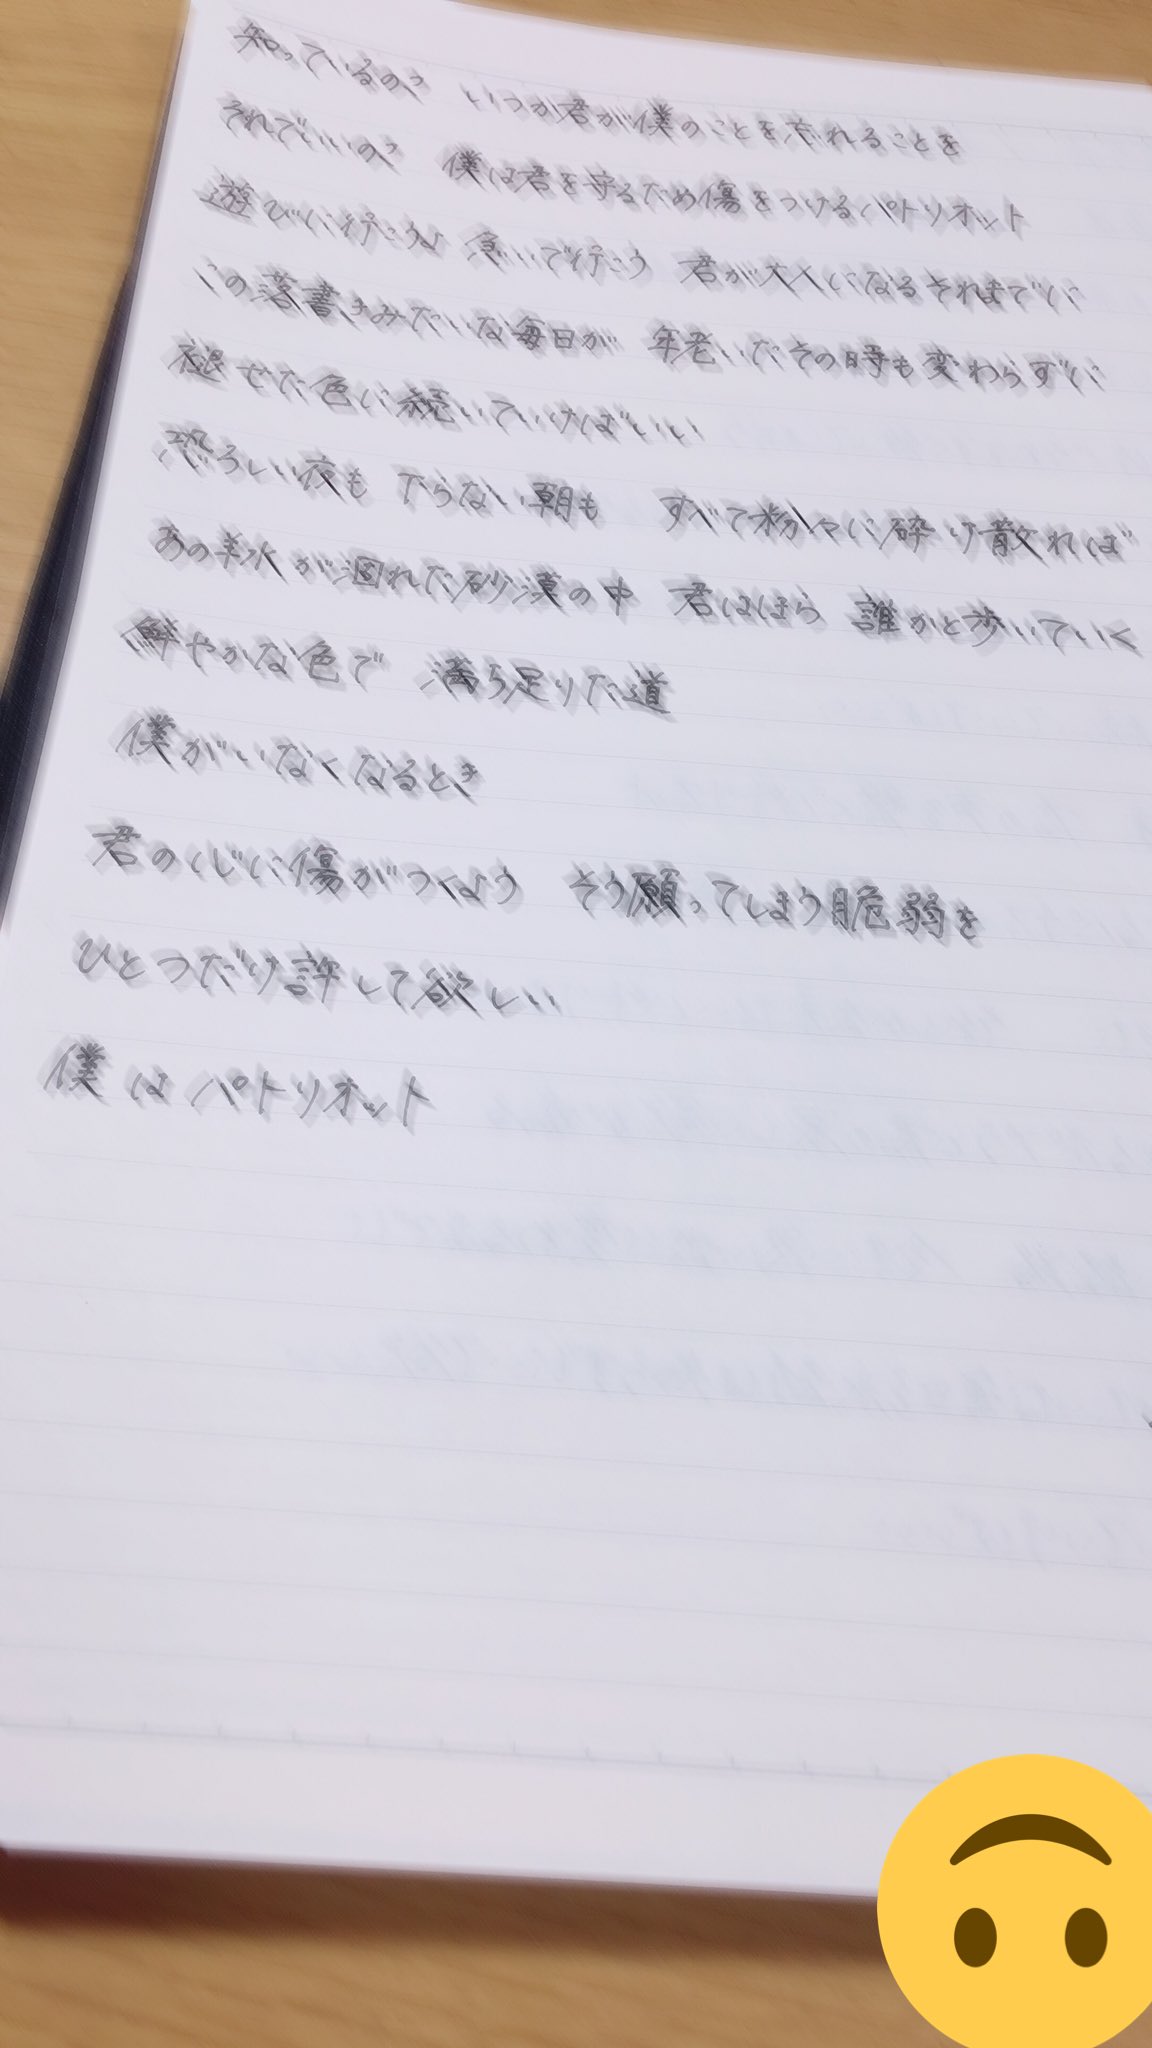 知っているの? いつか君が僕のことを忘れることを
それでいいの? 僕は君を守るため傷をつけるパトリオット
遊びに行こうよ 急いで行こう 君が大人になるそれまでに
この落書きみたいな毎日が 年老いたその時も変わらずに
褪せた色に続いていけばいい
恐ろしい夜も 下らない朝も すべて粉々に砕け散れば
あの羊水が涸れた砂漠の中 君はほら 誰かと歩いていく
鮮やかな色で 満ち足りた道
僕がいなくなるとき
君の心に傷がつくよう そう願ってしまう脆弱を
ひとつだけ許して欲しい
僕はパトリオット